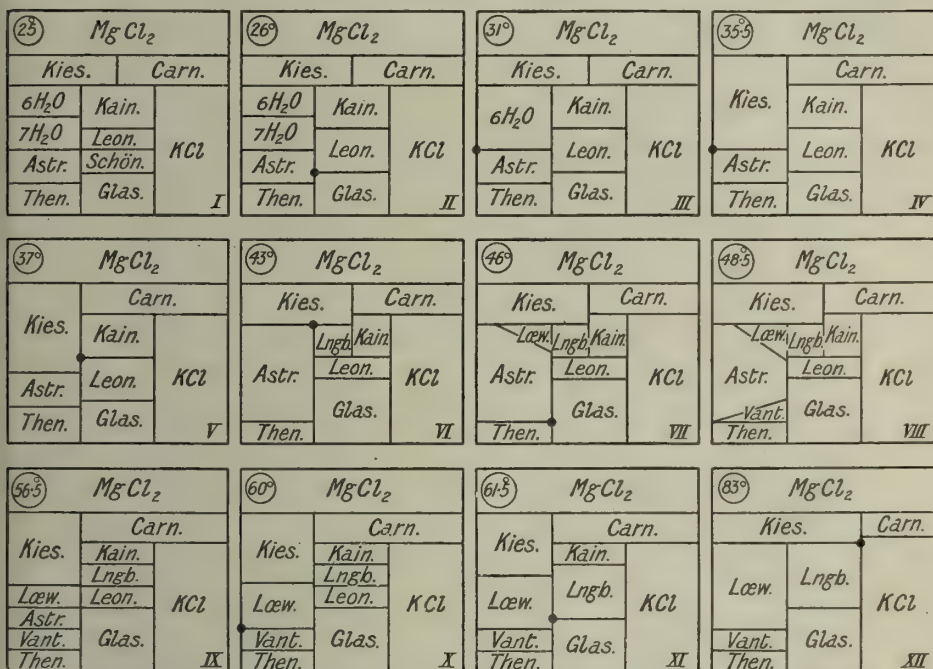 25° MgCl2
Kies. Carn.
6H2O Kain.
7H2O Leon. KCl
Astr. Schön.
Then. Glas. I
26° MgCl2
Kies. Carn.
6H2O Kain.
7H2O
Leon. KCl
Astr.
Then. Glas. II
31° MgCl2
Kies. Carn.
6H2O Kain.
Astr. Leon. KCl
Then. Glas. III
35·5° MgCl2
Carn.
Kies. Kain.
Astr. Leon. KCl
Then. Glas. IV
37° MgCl2
Carn.
Kies. Kain.
Astr. Leon. KCl
Then. Glas. V
43° MgCl2
Kies. Carn.
Lngb. Kain.
Astr. Leon. KCl
Glas.
Then. VI
46° MgCl2
Kies. Carn.
Lœw. Lngb. Kain.
Astr. Leon. KCl
Glas.
Then. VII
48·5° MgCl2
Kies. Carn.
Lœw. Lngb. Kain.
Astr. Leon. KCl
Vant. Glas.
Then. VIII
56·5° MgCl2
Carn.
Kies. Kain.
Lngb.
Lœw. Leon. KCl
Astr.
Vant. Glas.
Then. IX
60° MgCl2
Carn.
Kies. Kain.
Lngb.
Lœw. Leon. KCl
Vant. Glas.
Then. X
61·5° MgCl2
Carn.
Kies. Kain.
Lœw. Lngb. KCl
Vant. Glas.
Then. XI
83° MgCl2
Kies. Carn.
Lœw. Lngb. KCl
Vant. Glas.
Then. XII